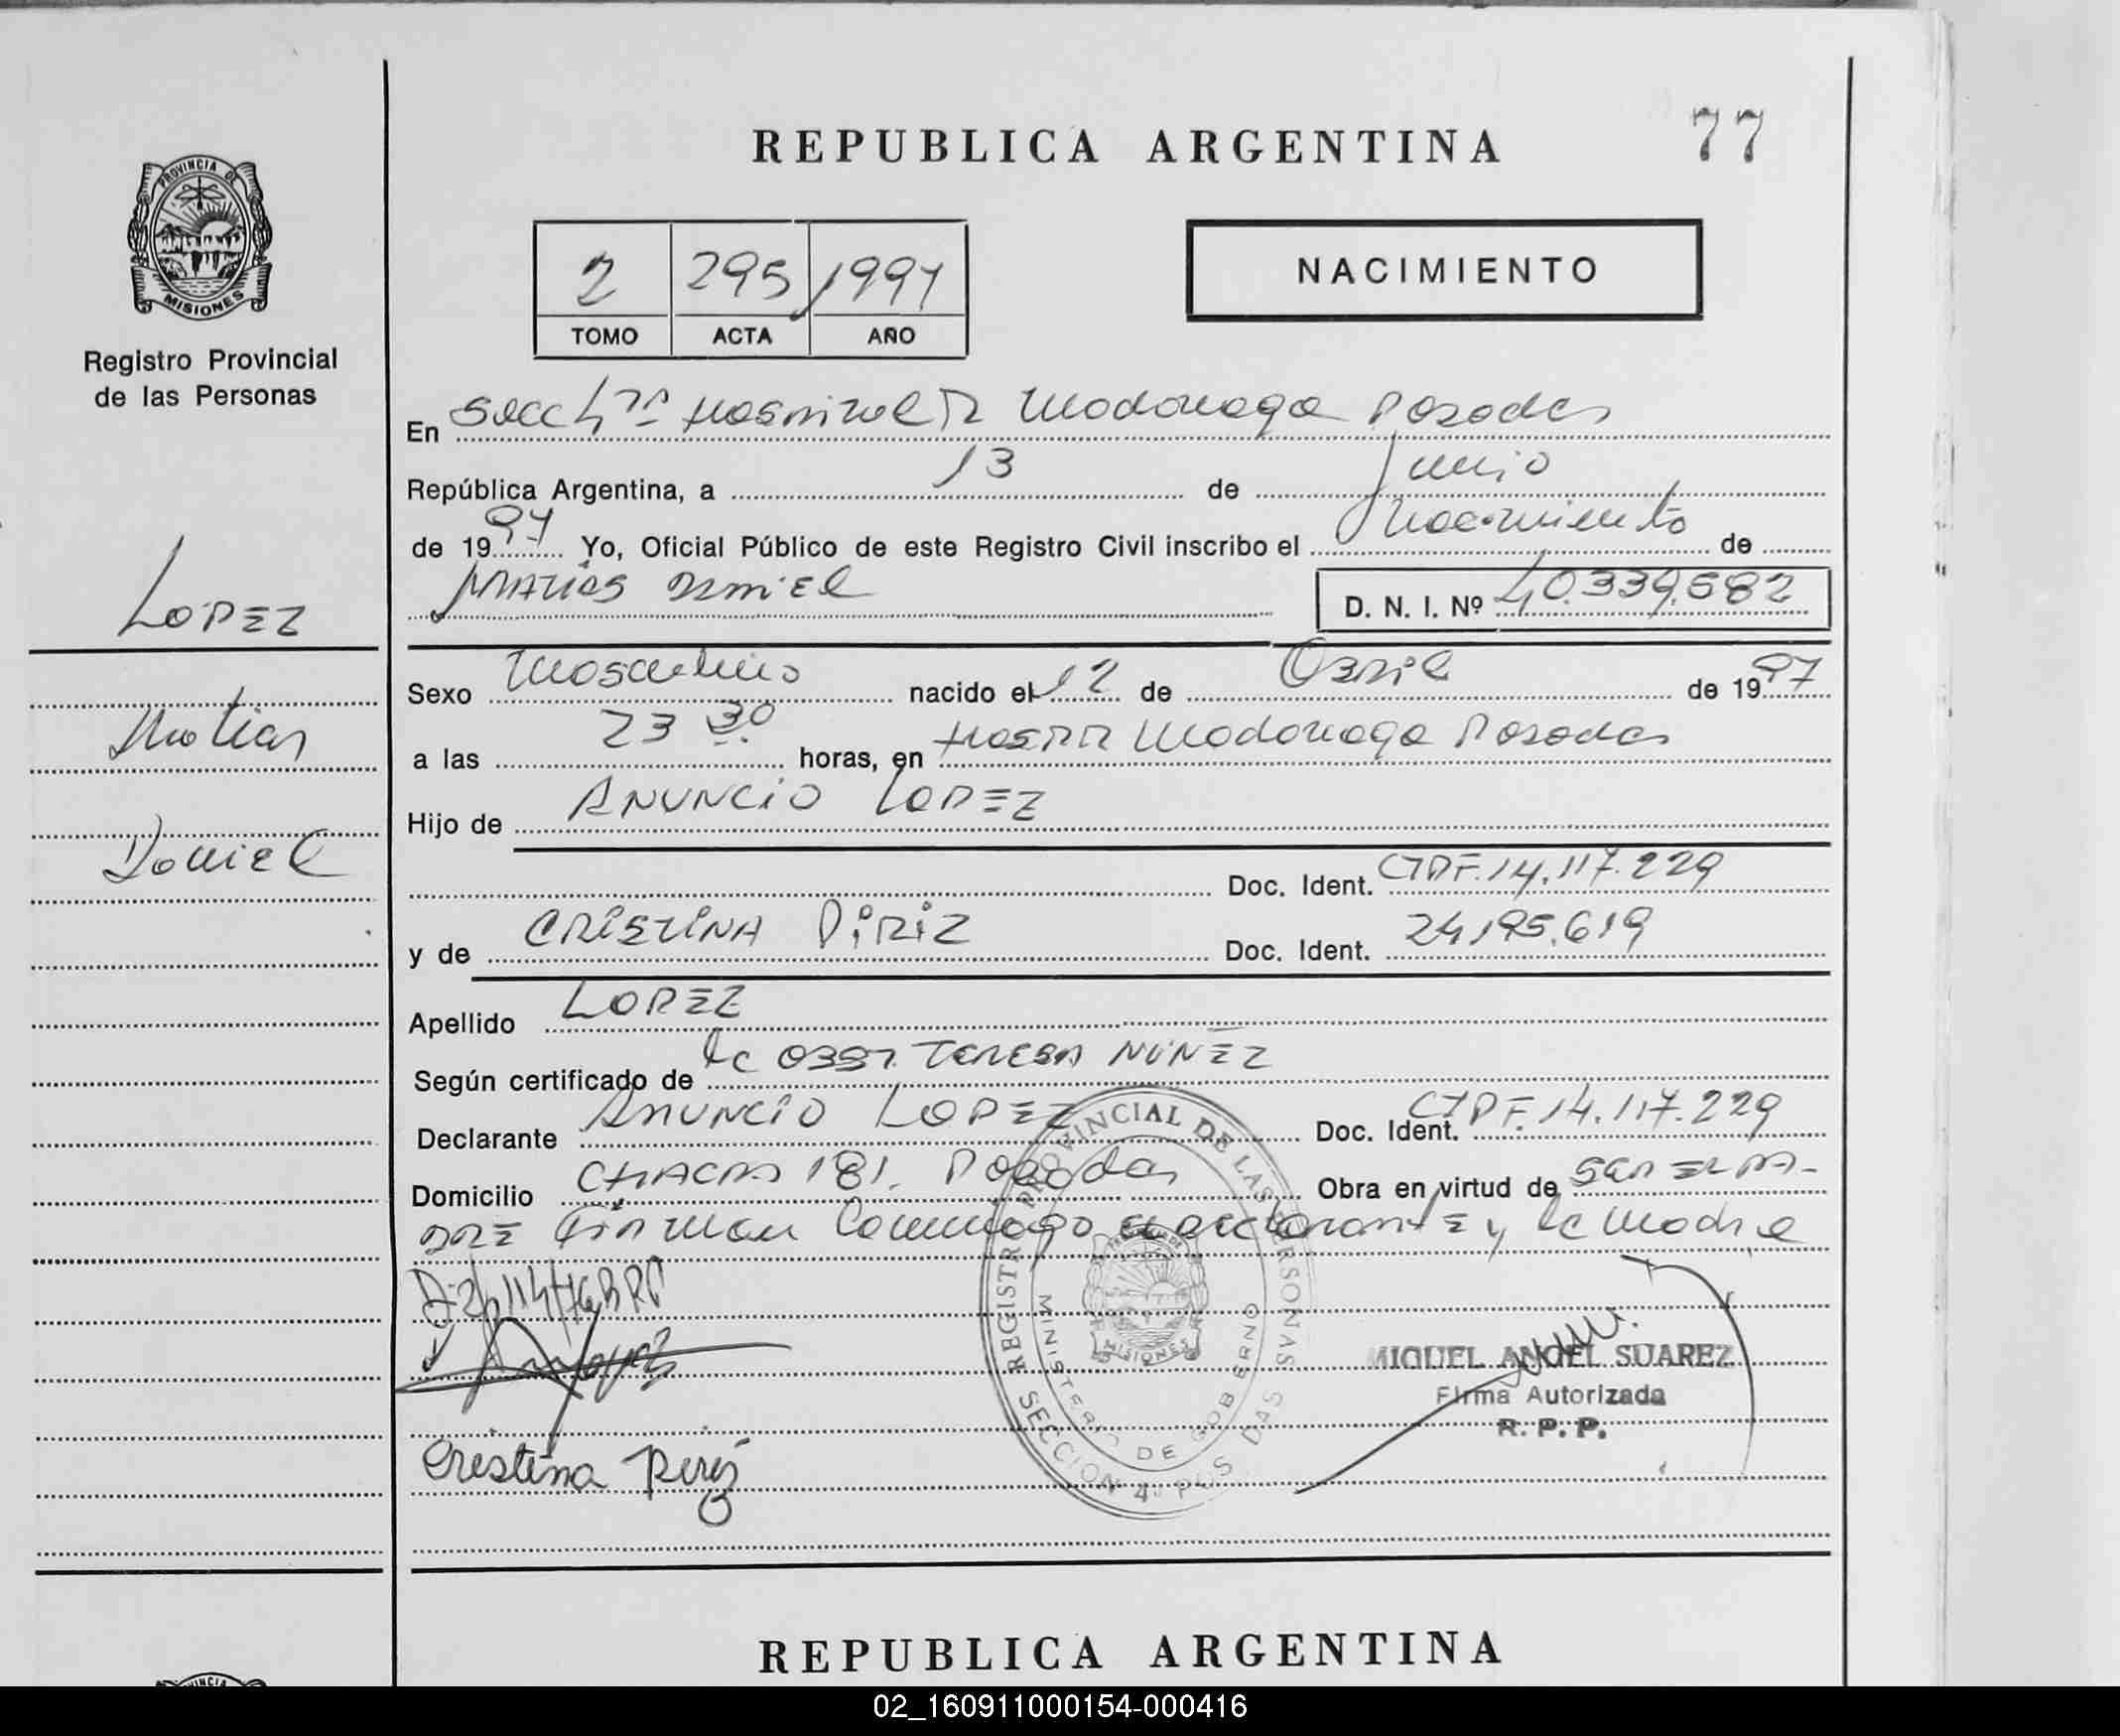 77
REPUBLICA ARGENTINA
PROVINCIA DE
MISIONES
Registro Provincial
de las Personas
NACIMIENTO
2 295 1997
TOMO ACTA AÑO
En Secc 4ª Hospital Dr Madariaga Posadas
República Argentina, a 13 de Junio
de 1997 Yo, Oficial Público de este Registro Civil inscribo el Nacimiento de
Matias Daniel D. N. I. Nº 40.339.582
LOPEZ
Matias
Daniel
Sexo Masculino nacido el 12 de Abril de 1997
a las 23 30 horas, en Hosp Dr Madariaga Posadas
Hijo de ANUNCIO LOPEZ
Doc. Ident. CIPF. 14.117.229
y de CRISTINA PIRIZ Doc. Ident. 24.195.619
Apellido LOPEZ
Según certificado de la Obst. TERESA NUÑEZ
Declarante ANUNCIO LOPEZ Doc. Ident. CIPF. 14.117.229
Domicilio CHACRA 181. Posadas Obra en virtud de SER EL PA-
DRE Firman Conmigo el declarante y la Madre
REGISTRO PROVINCIAL DE LAS PERSONAS
MINISTERIO DE GOBIERNO
MISIONES
SECCION 4ª POSADAS
MIGUEL ANGEL SUAREZ
Firma Autorizada
R. P. P.
Cristina Piriz
REPUBLICA ARGENTINA
02_160911000154-000416